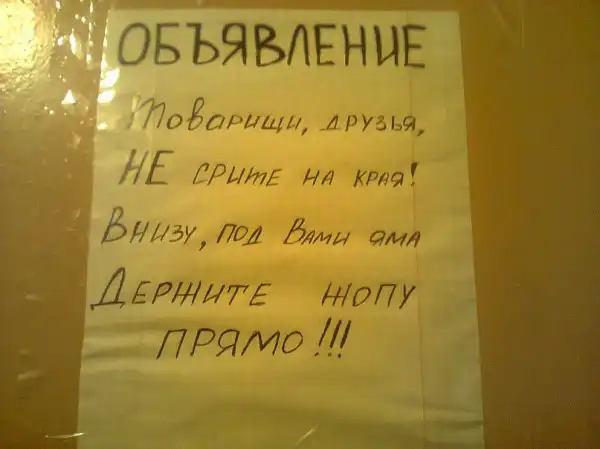 ОБЪЯВЛЕНИЕ
Товарищи, друзья,
НЕ срите на края!
Внизу, под Вами яма
Держите жопу
прямо!!!